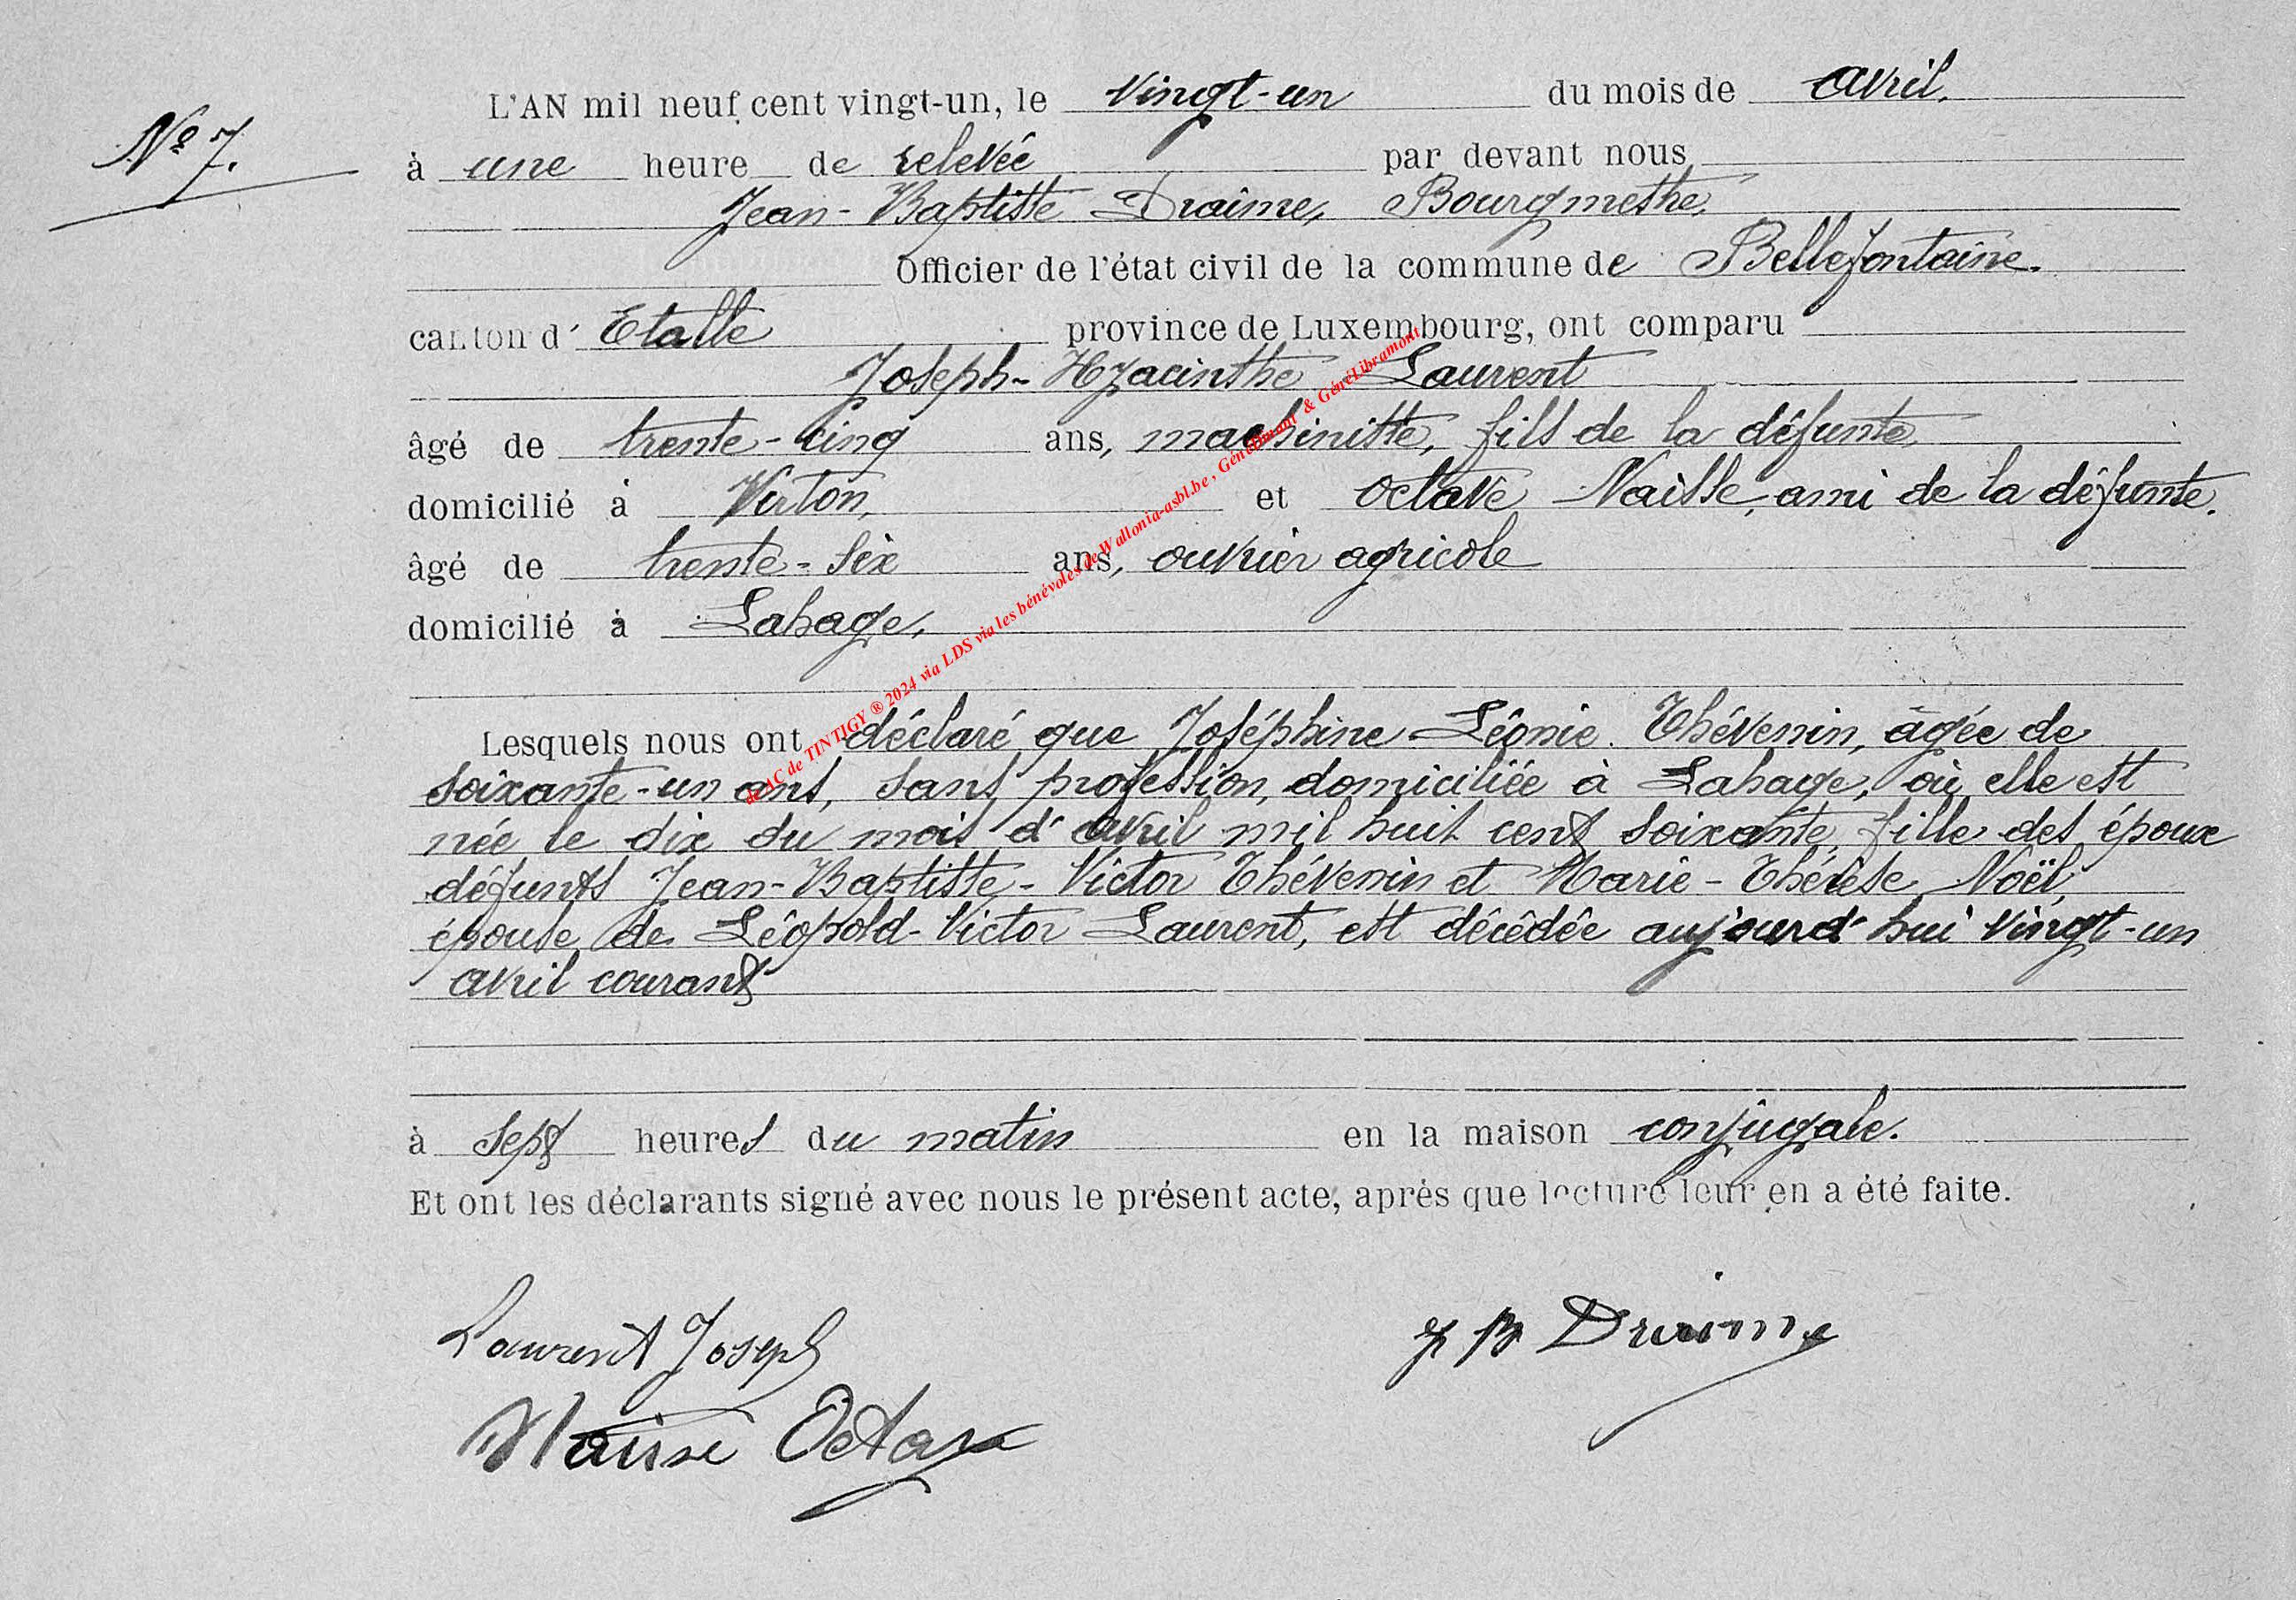 N° 7.
L'AN mil neuf cent vingt-un, le vingt-un du mois de avril.
à une heure de relevée par devant nous
Jean-Baptiste Draime, Bourgmestre,
Officier de l'état civil de la commune de Bellefontaine.
canton d' Etalle province de Luxembourg, ont comparu
Joseph-Hyacinthe Laurent
âgé de trente-cinq ans, machiniste, fils de la défunte
domicilié à Virton, et Octave Naisse, ami de la défunte.
âgé de trente-six ans, ouvrier agricole
domicilié à Lahage.
Lesquels nous ont déclaré que Joséphine Léonie Thévenin, âgée de
soixante-un ans, sans profession, domiciliée à Lahage, où elle est
née le dix du mois d'avril mil huit cent soixante, fille des époux
défunts Jean-Baptiste-Victor Thévenin et Marie-Thérèse Noël,
épouse de Léopold-Victor Laurent, est décédée aujourd'hui vingt-un
avril courant
à sept heures du matin en la maison conjugale.
Et ont les déclarants signé avec nous le présent acte, après que lecture leur en a été faite.
Laurent Joseph
J B Draime
Naisse Octave
de AC de TINTIGY ® 2024 via LDS via les bénévoles de Wallonia-asbl.be, & GénéLibramont